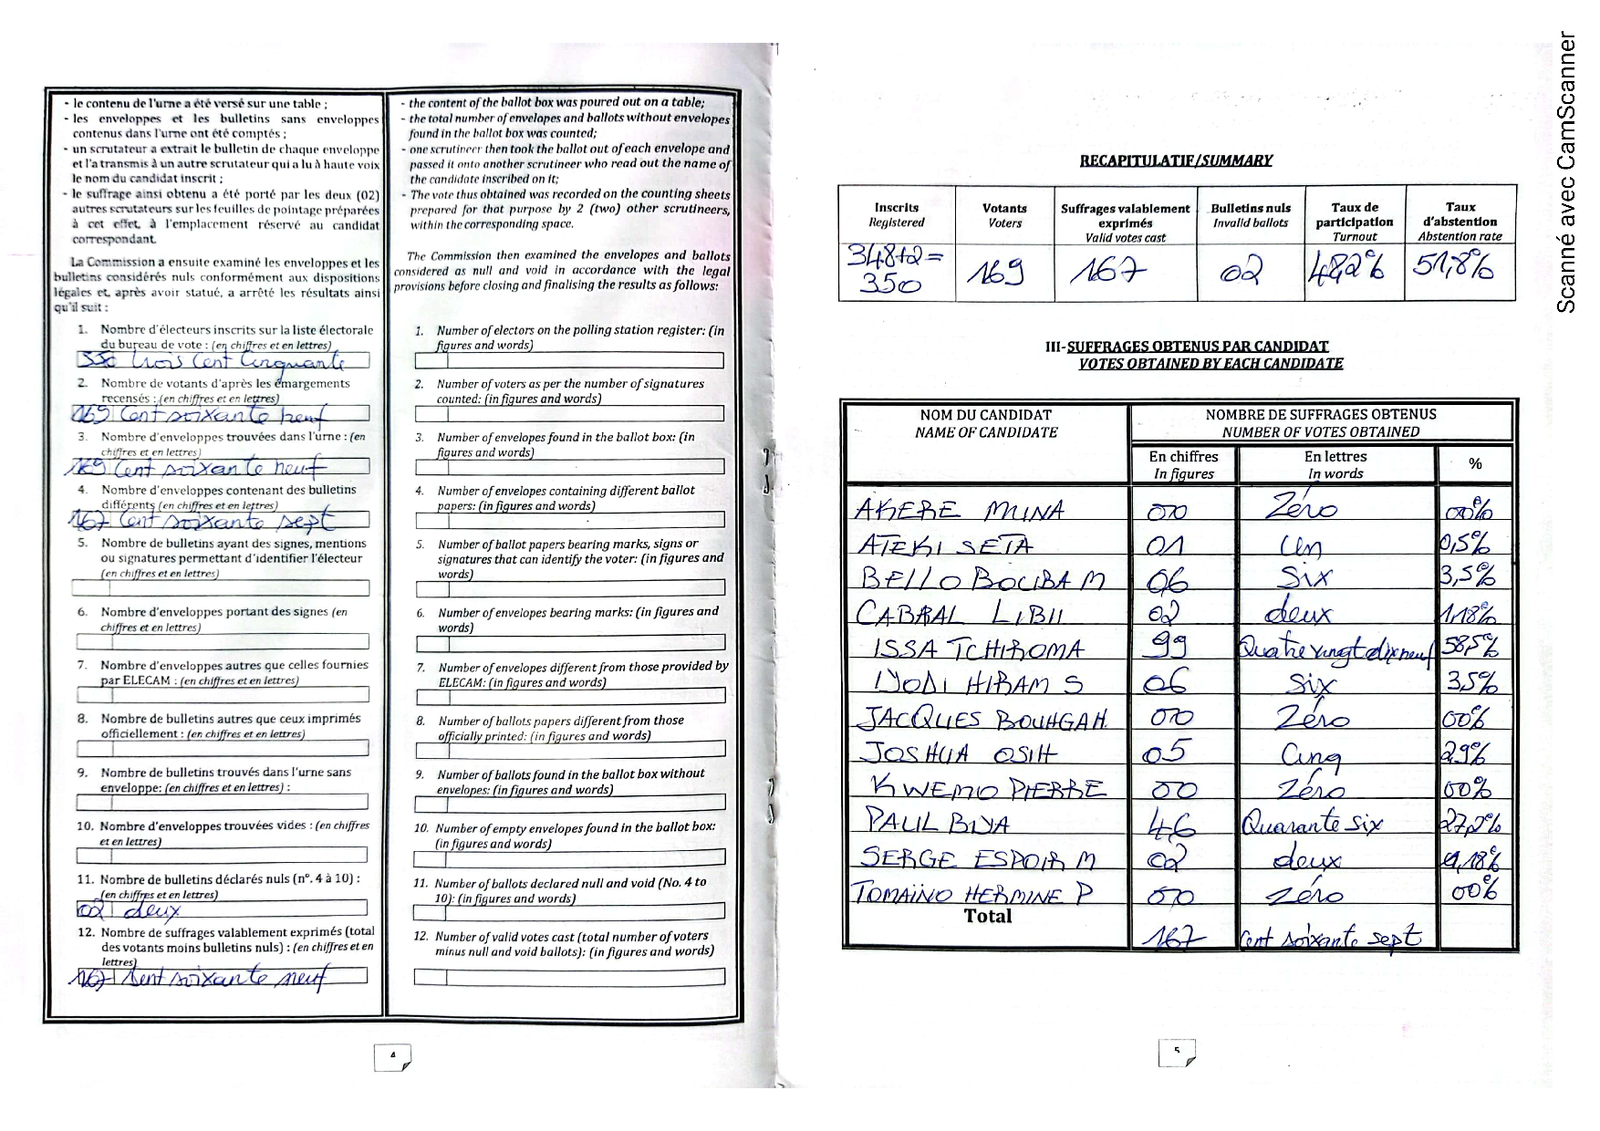 - le contenu de l'urne a été versé sur une table ;
- les enveloppes et les bulletins sans enveloppes
contenus dans l'urne ont été comptés ;
- un scrutateur a extrait le bulletin de chaque enveloppe
et l'a transmis à un autre scrutateur qui a lu à haute voix
le nom du candidat inscrit ;
- le suffrage ainsi obtenu a été porté par les deux (02)
autres scrutateurs sur les feuilles de pointage préparées
à cet effet, à l'emplacement réservé au candidat
correspondant.
La Commission a ensuite examiné les enveloppes et les
bulletins considérés nuls conformément aux dispositions
légales et, après avoir statué, a arrêté les résultats ainsi
qu'il suit :
1. Nombre d'électeurs inscrits sur la liste électorale
du bureau de vote : (en chiffres et en lettres)
350 trois Cent Cinquante
2. Nombre de votants d'après les émargements
recensés : (en chiffres et en lettres)
169 Cent soixante neuf
3. Nombre d'enveloppes trouvées dans l'urne : (en
chiffres et en lettres)
169 Cent soixante neuf
4. Nombre d'enveloppes contenant des bulletins
différents (en chiffres et en lettres)
167 Cent soixante sept
5. Nombre de bulletins ayant des signes, mentions
ou signatures permettant d'identifier l'électeur
(en chiffres et en lettres)
6. Nombre d'enveloppes portant des signes (en
chiffres et en lettres)
7. Nombre d'enveloppes autres que celles fournies
par ELECAM : (en chiffres et en lettres)
8. Nombre de bulletins autres que ceux imprimés
officiellement : (en chiffres et en lettres)
9. Nombre de bulletins trouvés dans l'urne sans
enveloppe: (en chiffres et en lettres) :
10. Nombre d'enveloppes trouvées vides : (en chiffres
et en lettres)
11. Nombre de bulletins déclarés nuls (n°. 4 à 10) :
(en chiffres et en lettres)
02 deux
12. Nombre de suffrages valablement exprimés (total
des votants moins bulletins nuls) : (en chiffres et en
lettres)
167 Cent soixante neuf
- the content of the ballot box was poured out on a table;
- the total number of envelopes and ballots without envelopes
found in the ballot box was counted;
- one scrutineer then took the ballot out of each envelope and
passed it onto another scrutineer who read out the name of
the candidate inscribed on it;
- The vote thus obtained was recorded on the counting sheets
prepared for that purpose by 2 (two) other scrutineers,
within the corresponding space.
The Commission then examined the envelopes and ballots
considered as null and void in accordance with the legal
provisions before closing and finalising the results as follows:
1. Number of electors on the polling station register: (in
figures and words)
2. Number of voters as per the number of signatures
counted: (in figures and words)
3. Number of envelopes found in the ballot box: (in
figures and words)
4. Number of envelopes containing different ballot
papers: (in figures and words)
5. Number of ballot papers bearing marks, signs or
signatures that can identify the voter: (in figures and
words)
6. Number of envelopes bearing marks: (in figures and
words)
7. Number of envelopes different from those provided by
ELECAM: (in figures and words)
8. Number of ballots papers different from those
officially printed: (in figures and words)
9. Number of ballots found in the ballot box without
envelopes: (in figures and words)
10. Number of empty envelopes found in the ballot box:
(in figures and words)
11. Number of ballots declared null and void (No. 4 to
10): (in figures and words)
12. Number of valid votes cast (total number of voters
minus null and void ballots): (in figures and words)
4
RECAPITULATIF/SUMMARY
Inscrits Registered Votants Voters Suffrages valablement exprimés Valid votes cast Bulletins nuls Invalid ballots Taux de participation Turnout Taux d'abstention Abstention rate
348+2=
350 169 167 02 48,2% 51,8%
III- SUFFRAGES OBTENUS PAR CANDIDAT
VOTES OBTAINED BY EACH CANDIDATE
NOM DU CANDIDAT NOMBRE DE SUFFRAGES OBTENUS
NAME OF CANDIDATE NUMBER OF VOTES OBTAINED
En chiffres En lettres %
In figures In words
AKERE MUNA 00 Zéro 00%
ATEKI SETA 01 Un 0,5%
BELLO BOUBA M 06 Six 3,5%
CABRAL LIBII 02 deux 1,18%
ISSA TCHIROMA 99 Quatre vingt dix neuf 58,5%
IYODI HIRAM S 06 Six 3,5%
JACQUES BOUHGAH 00 Zéro 00%
JOSHUA OSIH 05 Cinq 2,9%
KWEMO PIERRE 00 Zéro 00%
PAUL BIYA 46 Quarante six 27,2%
SERGE ESPOIR M 02 deux 1,18%
TOMAÏNO HERMINE P 00 Zéro 00%
Total 167 Cent soixante sept
5
Scanné avec CamScanner